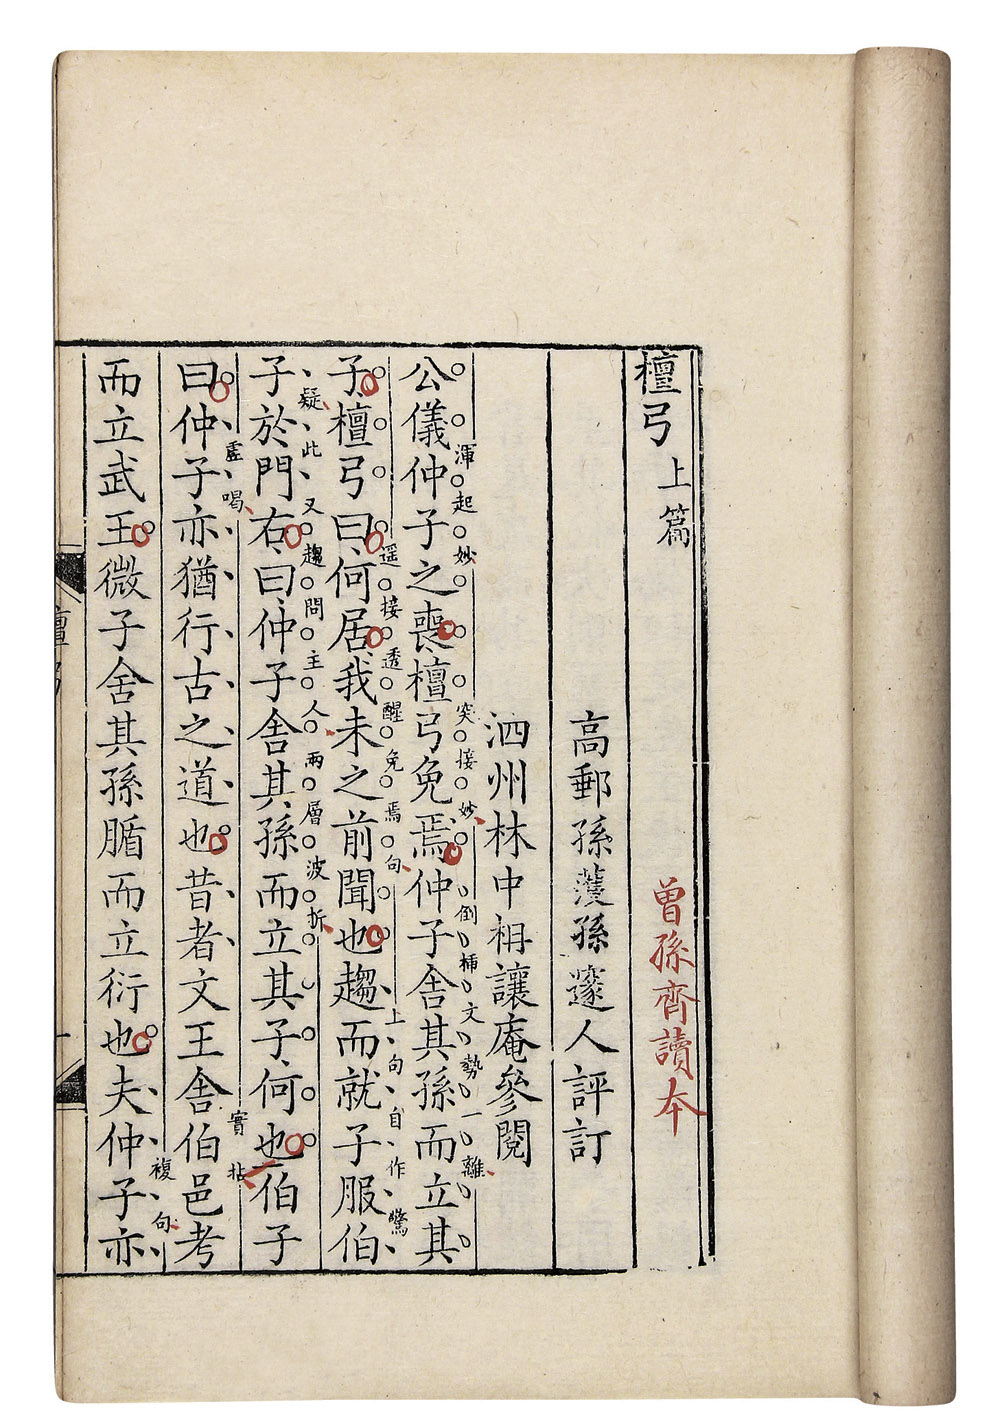 檀弓 上篇
曾孫齊讀本
高郵孫濩孫邃人評訂
泗州林中枏讓庵參閱
公儀仲子之喪檀弓免焉仲子舍其孫而立其
渾起妙
突接妙
倒揷文勢一離
子檀弓曰何居我未之前聞也趨而就子服伯
遥接透醒免焉句
上句自作驚
子於門右曰仲子舍其孫而立其子何也伯子
疑此又趨問主人兩層波折
曰仲子亦猶行古之道也昔者文王舍伯邑考
虛喝
實拈
而立武王微子舍其孫腯而立衍也夫仲子亦
複句
檀弓